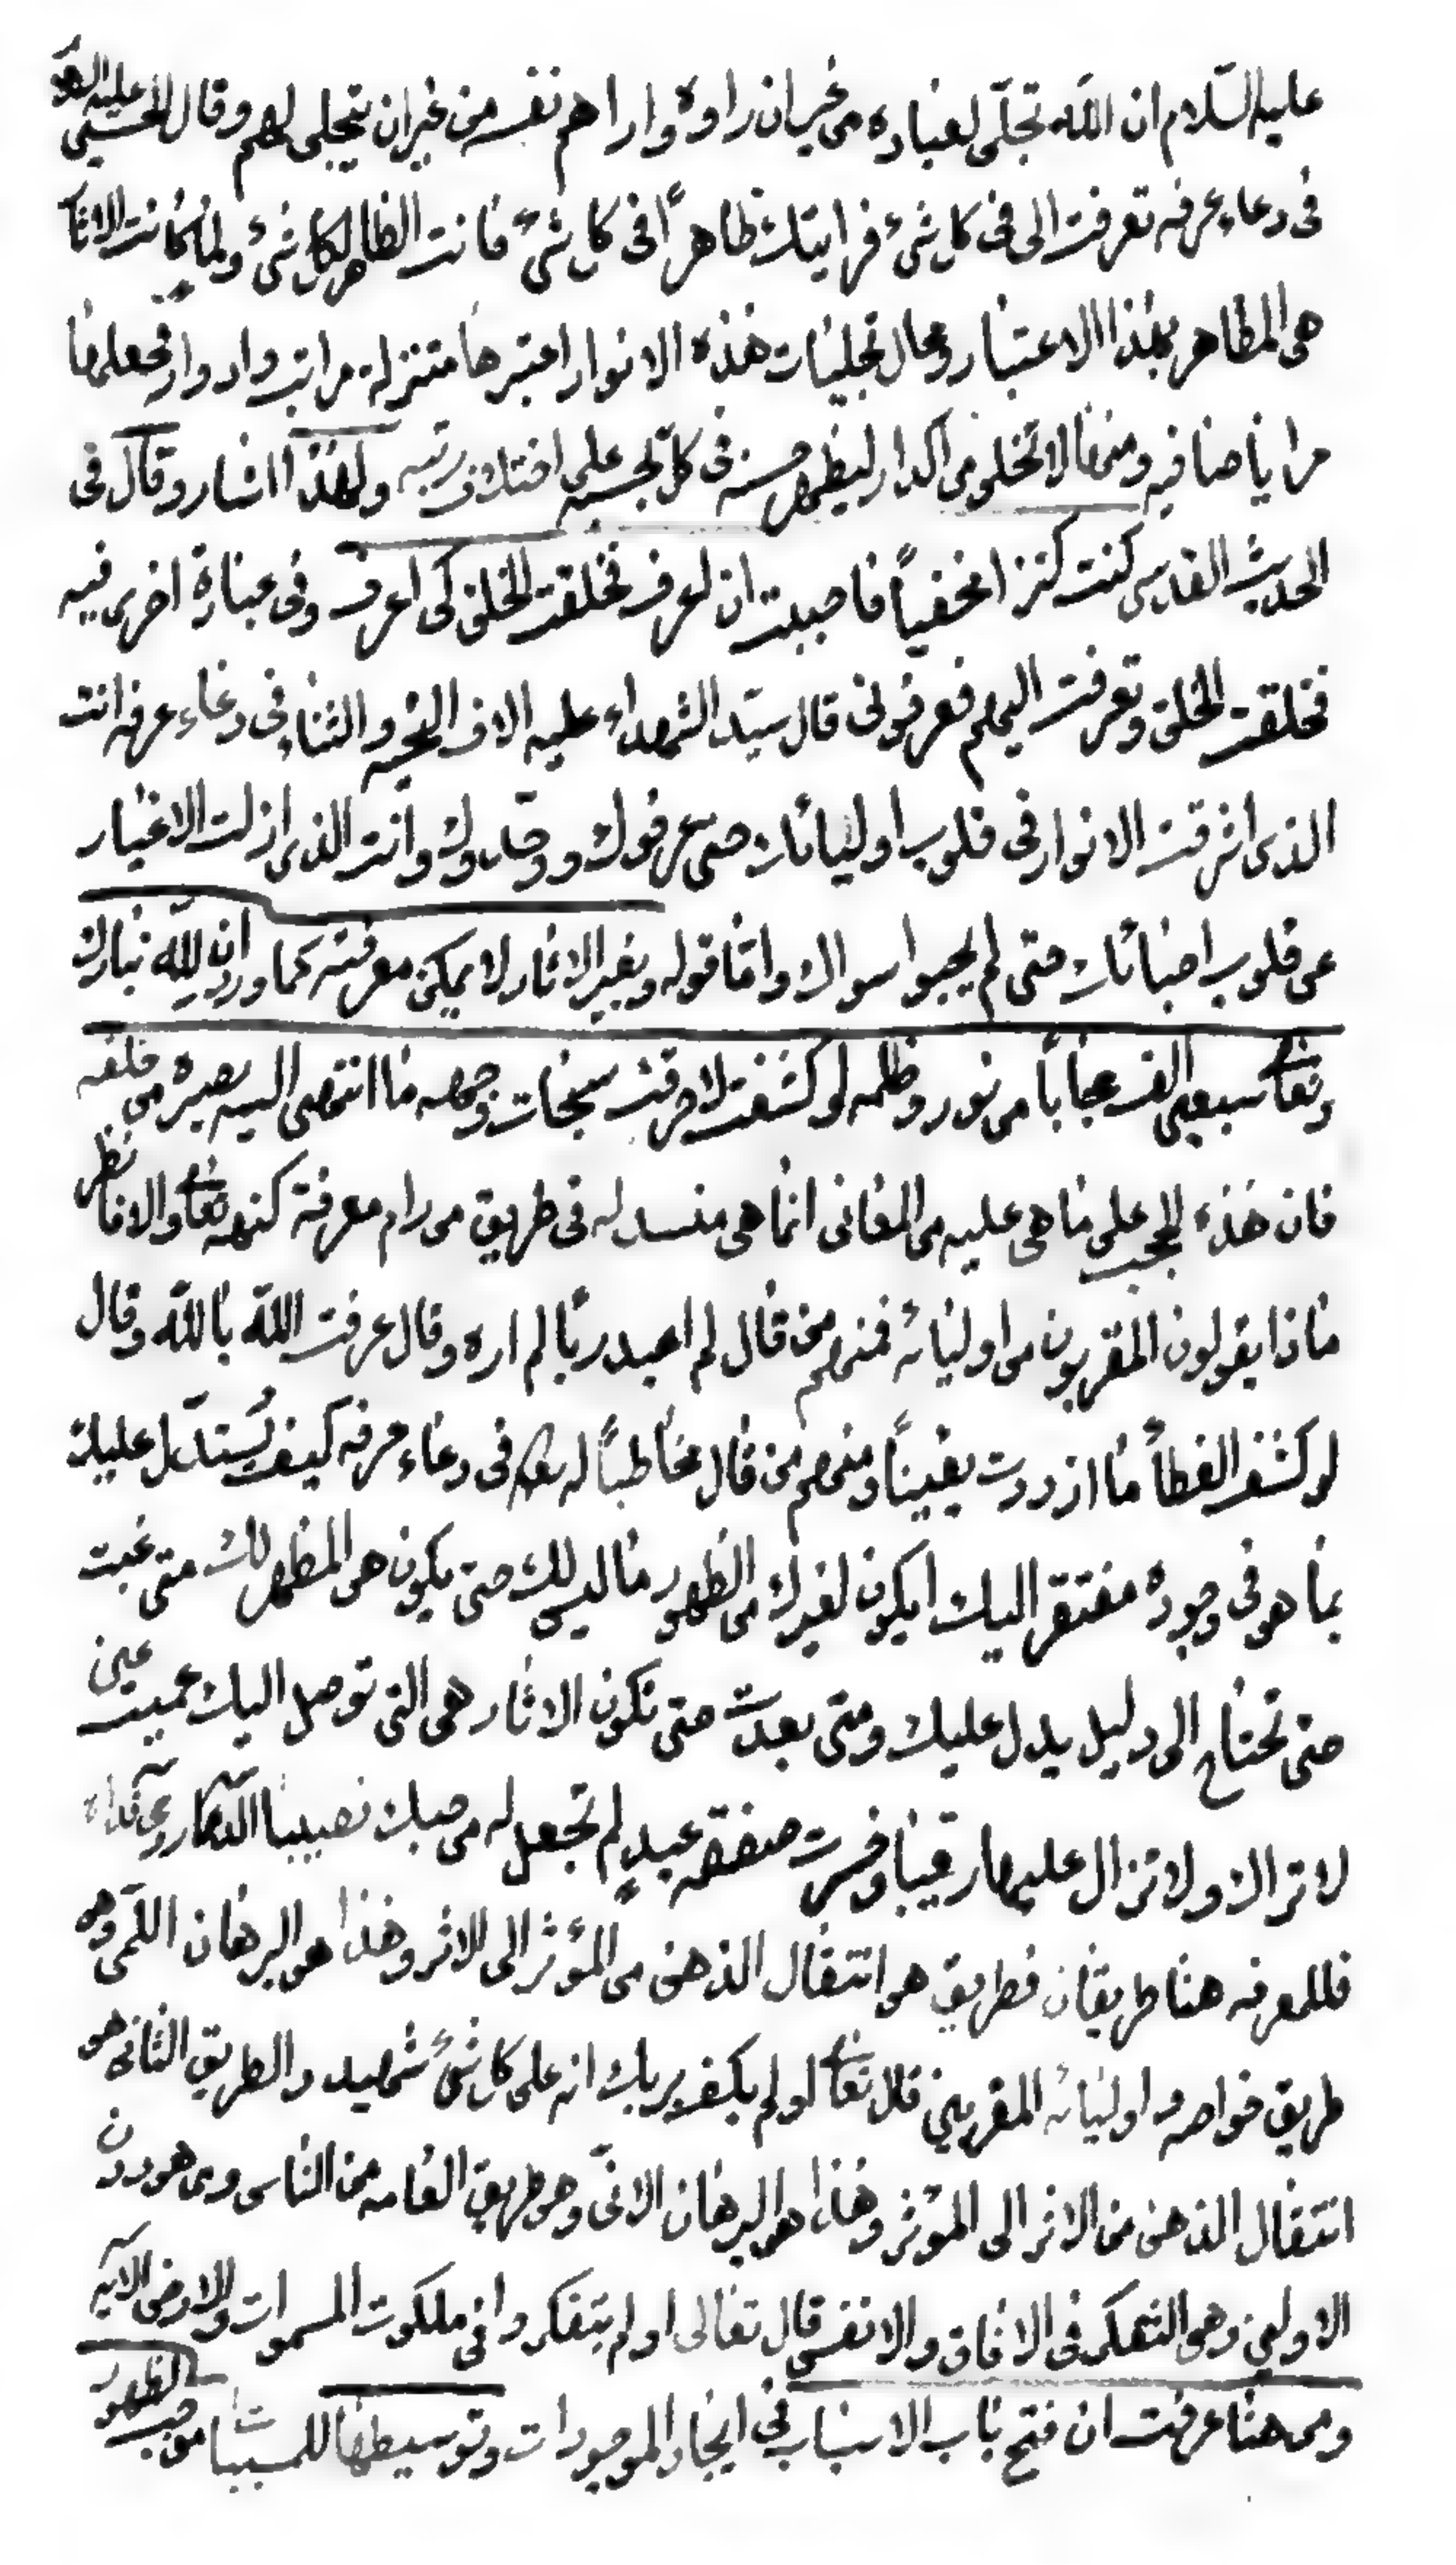 عليه السّلام ان اللّه تجلّى لعباده من غير ان راوه واراهم نفسه من غير ان يتجلى لهم وقال الحسين عليه
فى دعاء عرفه تعرفت الى فى كل شئ فرايتك ظاهرًا فى كل شئ فانت الظاهر لكل شئ ولما كانت الاثار
هى المظاهر بهذا الاعتبار ومحال تجليات هذه الانوار اعتبرها متنزلة مراتب وادوار فجعلها
مرايا صافيه ومنها لا تخلو من اكدار ليظهر حسنه فى كل بحسبه على اختلاف رتبه ولهذا اشار وقال فى
الحديث القدسى كنت كنزا مخفياً فاحببت ان اعرف فخلقت الخلق كى اعرف وفى عبارة اخرى فيه
فخلقت الخلق وتعرفت اليهم فعرفونى قال سيّد الشهداء عليه الاف التحيه والثناء فى دعاء عرفه انت
الذى اشرقت الانوار فى قلوب اوليائك حتى عرفوك ووحّدوك وانت الذى ازلت الاغيار
عن قلوب احبائك حتى لم يحبوا سواك وامّا قوله وبغير الاثار لا يمكن معرفته كما ورد ان للّه تبارك
وتعالى سبعين الف حجاباً من نور وظلمه لو كشفت لاحرقت سبحات وجهه ما انتهى اليه بصره من خلقه
فان هذه الحجب على ما هى عليه من المعانى انما هى منسدله فى طريق من رام معرفة كنهه تعالى والا فانظر
ماذا يقولون المقربون من اوليائه فمنهم من قال لم اعبد ربًا لم اره وقال عرفت اللّه باللّه وقال
لو كشف الغطاء ما ازددت يقيناً ومنهم من قال مخاطباً له فى دعاء عرفه كيف يُستدّل عليك
بما هو فى وجوده مفتقر اليك ايكون لغيرك من الظهور ما ليس لك حتى يكون هو المظهر لك متى غبت
حتى تحتاج الى دليل يدل عليك ومتى بعدت حتى تكون الاثار هى التى توصل اليك عميت عين
لا تراك ولا تزال عليها رقيبًا وخسرت صفقة عبدٍ لم تجعل له من حبك نصيبًا
فللمعرفه هنا طريقان فطريق هو انتقال الذهن من المؤثر الى الاثر وهذا هو البرهان اللمّى وهو
طريق خواصه واوليائه المقربين قال تعالى اولم يكف بربك انه على كل شئ شهيد والطريق الثانى هو
انتقال الذهن من الاثر الى المؤثر وهذا هو البرهان الانّى وهو طريق العامه من الناس ومن هو دون
الاولين وهو التفكر فى الافاق والانفس قال تعالى اولم يتفكروا فى ملكوت السموات والارض الآيه
ومن هنا عرفت ان فتح باب الاسباب فى ايجاد الموجودات وتوسيطها للمسببات موجب لظهور